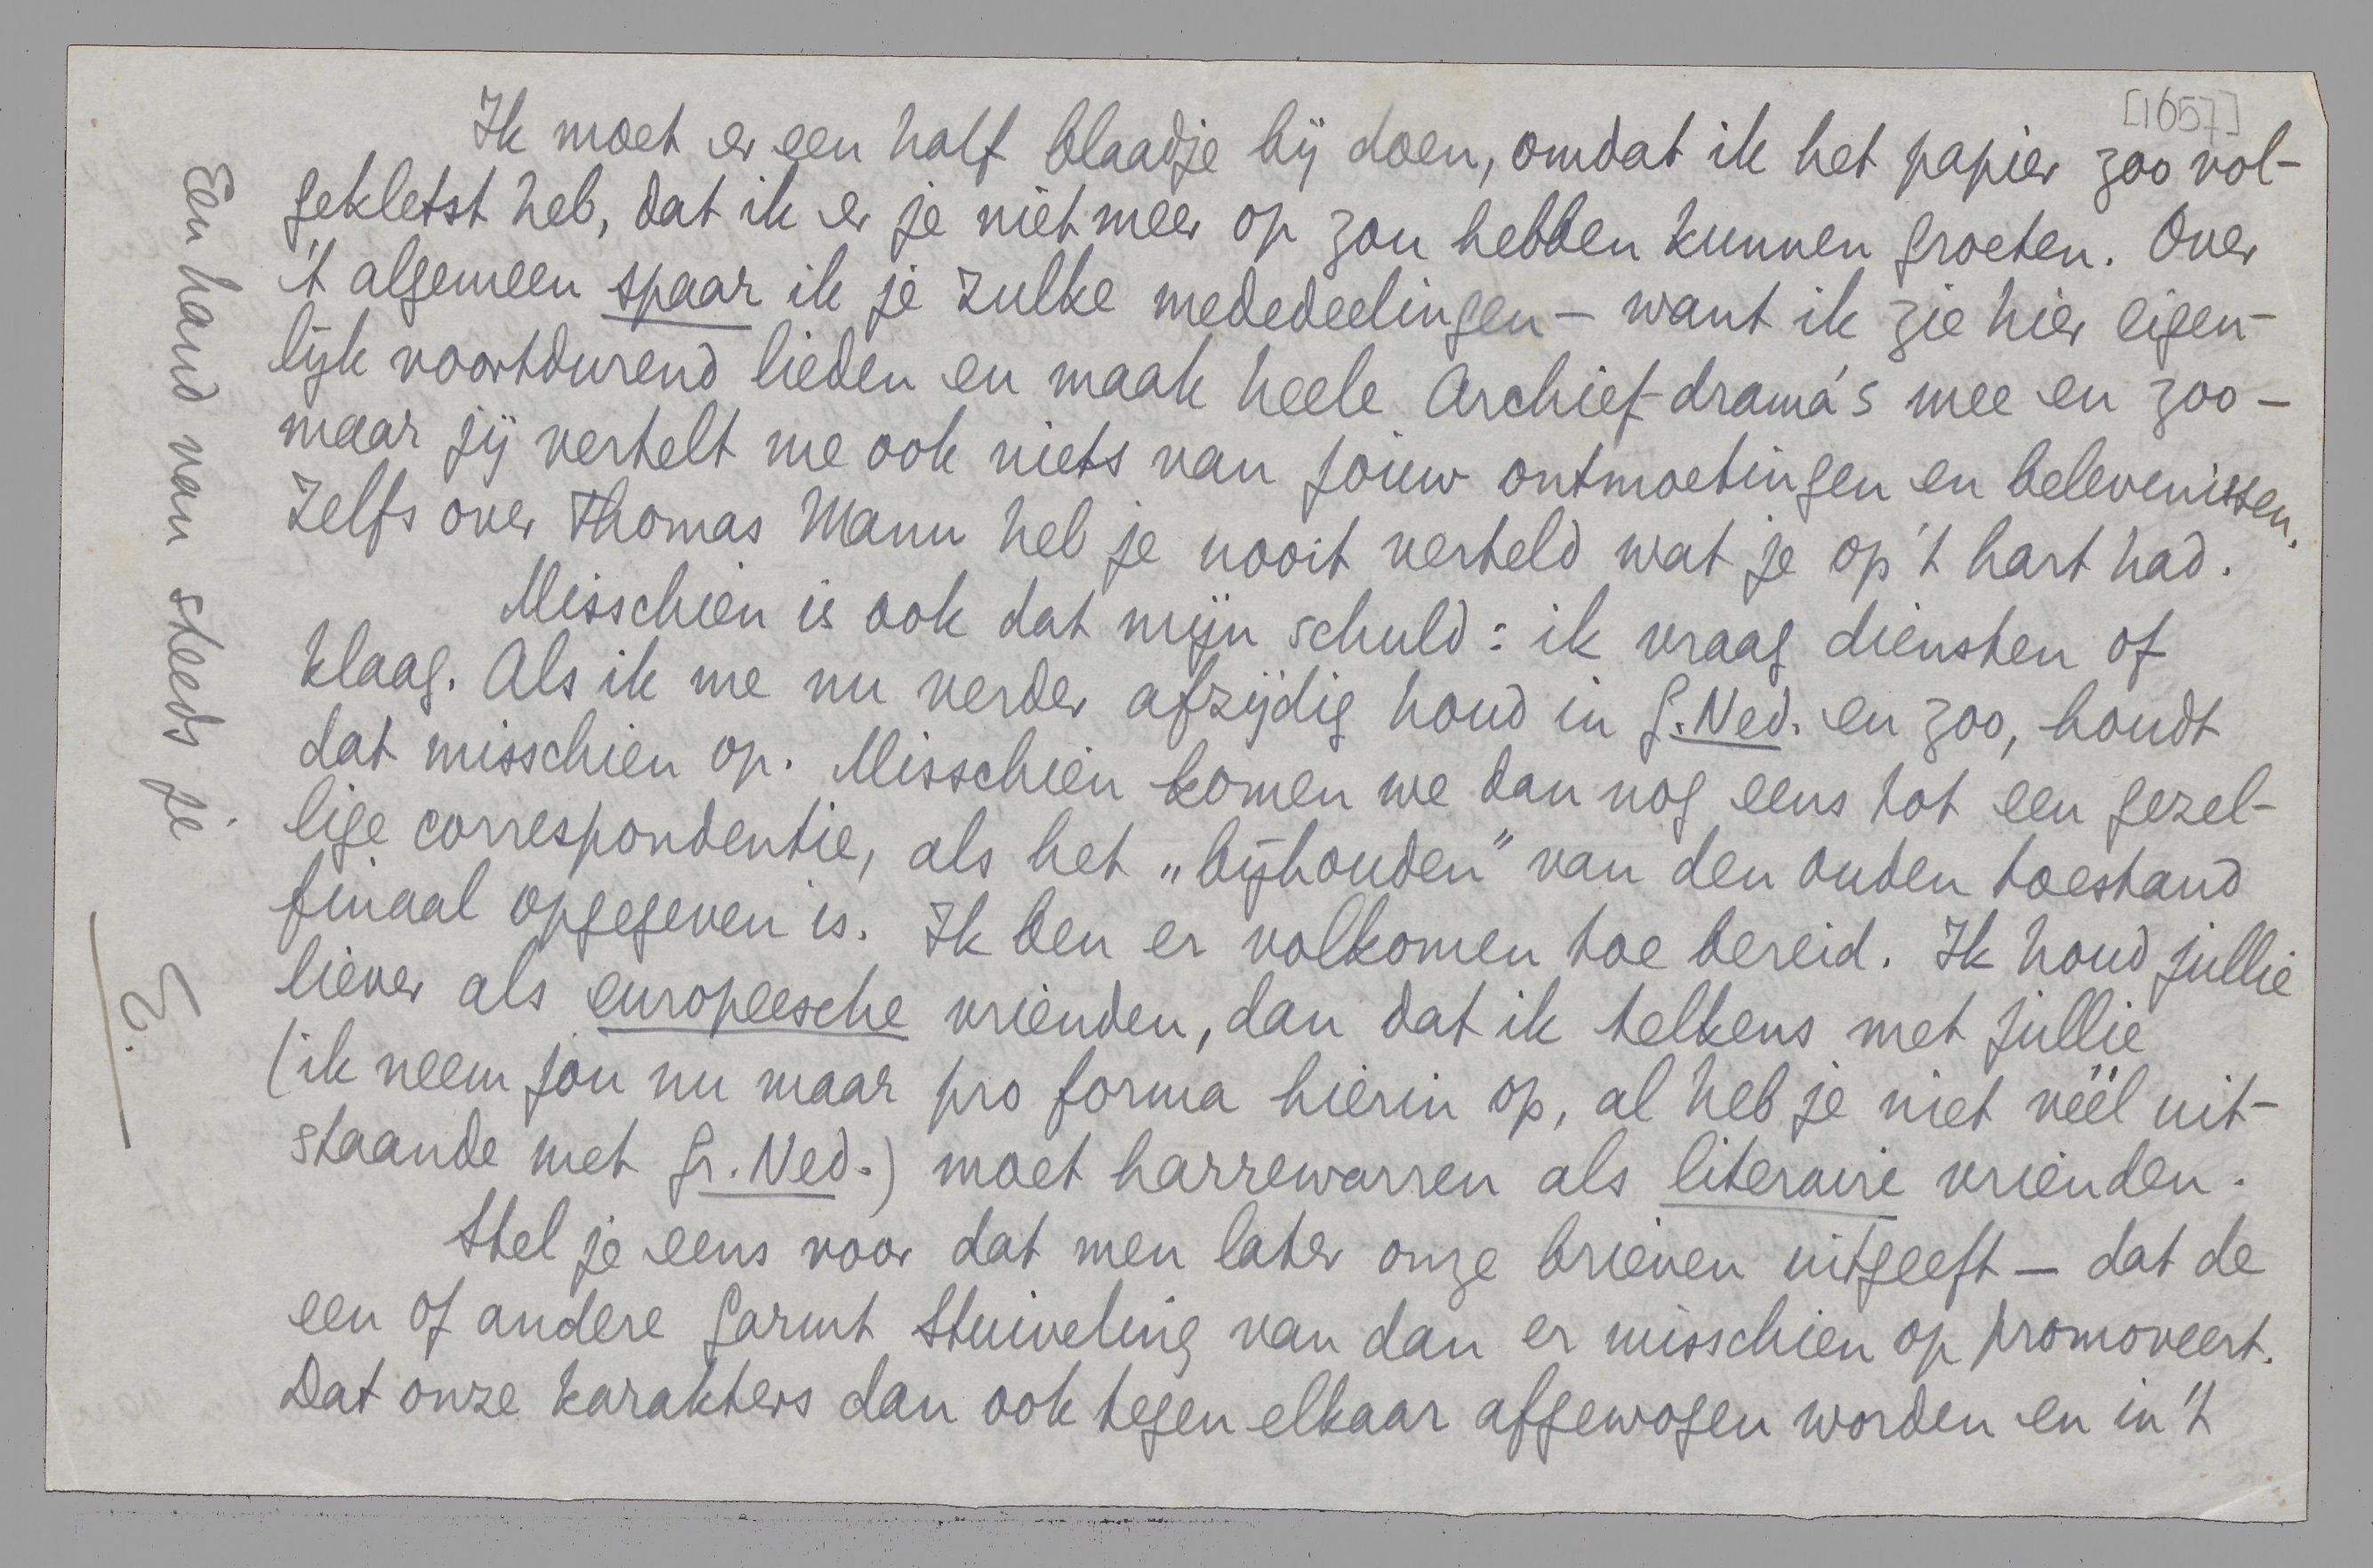 [1657]
Ik moet er een half blaadje bij doen, omdat ik het papier zoo vol-
gekletst heb, dat ik er je niet meer op zou hebben kunnen groeten. Over
't algemeen spaar ik je zulke mededeelingen – want ik zie hier eigen-
lijk voortdurend lieden en maak heele Archief-drama's mee en zoo –
maar jij vertelt me ook niets van jouw ontmoetingen en belevenissen.
Zelfs over Thomas Mann heb je nooit verteld wat je op 't hart had.
Misschien is ook dat mijn schuld: ik vraag diensten of
klaag. Als ik me nu verder afzijdig houd in G.Ned. en zoo, houdt
dat misschien op. Misschien komen we dan nog eens tot een gezel-
lige correspondentie, als het „bijhouden" van den ouden toestand
finaal opgegeven is. Ik ben er volkomen toe bereid. Ik houd jullie
liever als europeesche vrienden, dan dat ik telkens met jullie
(ik neem jou nu maar pro forma hierin op, al heb je niet véél uit-
staande met Gr. Ned.) moet harrewarren als literaire vrienden.
Stel je eens voor dat men later onze brieven uitgeeft – dat de
een of andere Garmt Stuiveling van dan er misschien op promoveert.
Dat onze karakters dan ook tegen elkaar afgewogen worden en in 't
Een hand van steeds je
E.